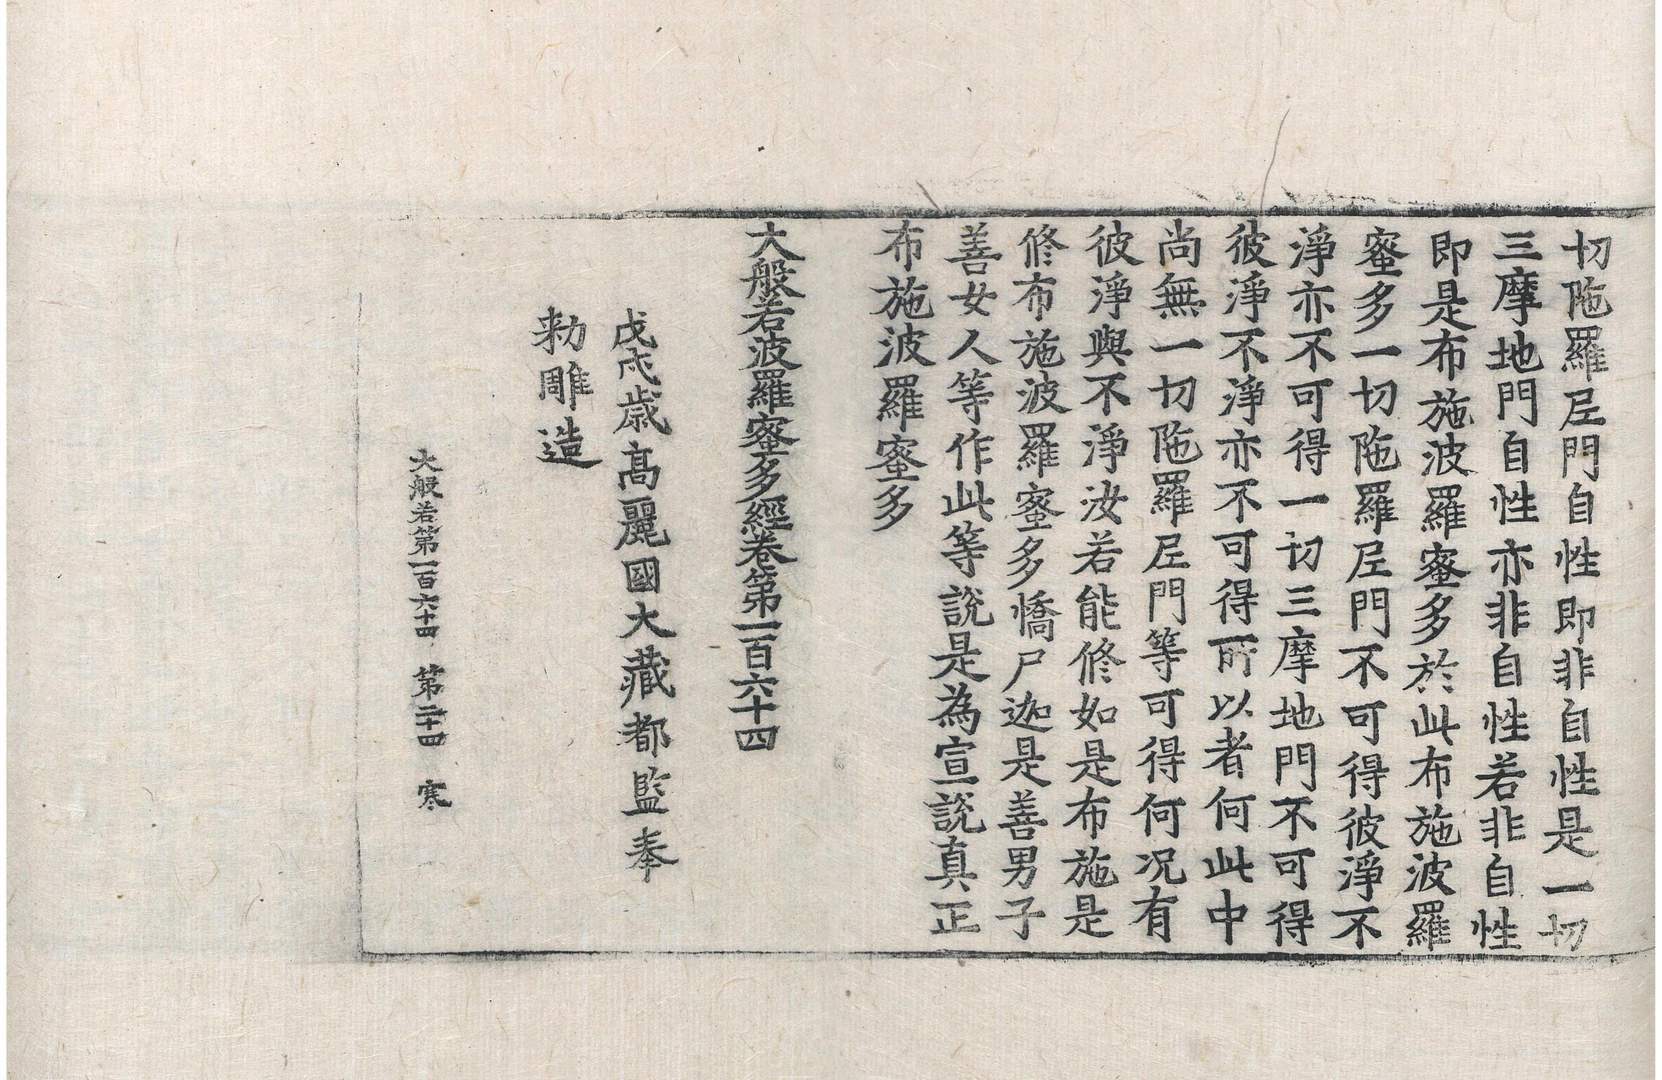 切陁羅尼門自性即非自性是一切
三摩地門自性亦非自性若非自性
即是布施波羅蜜多於此布施波羅
蜜多一切陁羅尼門不可得彼淨不
淨亦不可得一切三摩地門不可得
彼淨不淨亦不可得所以者何此中
尚無一切陁羅尼門等可得何況有
彼淨與不淨汝若能修如是布施是
修布施波羅蜜多憍尸迦是善男子
善女人等作此等說是為宣說真正
布施波羅蜜多
大般若波羅蜜多經卷第一百六十四
戊戌歲高麗國大藏都監奉
勑雕造
大般若第一百六十四 第二十四 寒